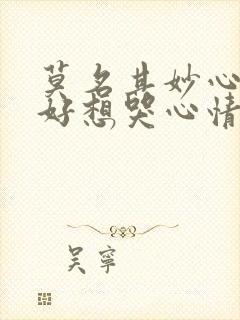 莫名其妙心
好想哭心情
吴寧